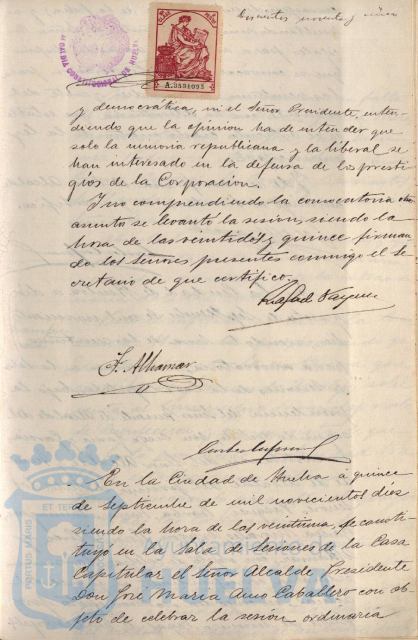 Doscientos noventa y cinco
A.3531095
y democrática, ni el Señor Presidente, enten-
diendo que la opinión ha de entender que
solo la minoria republicana y la liberal se
han interesado en la defensa de los presti-
gios de la Corporación.
Y no comprendiendo la convocatoria otro
asunto se levantó la sesion, siendo la
hora de las veintidos y quince firman-
do los Señores presentes conmigo el Se-
cretario de que certifico.
Rafael Vazquez
F. Alhamar
En la Ciudad de Huelva á quince
de Septiembre de mil novecientos diez
siendo la hora de las veintiuna, se consti-
tuyó en la Sala de Sesiones de la Casa
Capitular el Señor Alcalde Presidente
Don José María Amo Caballero con ob-
jeto de celebrar la sesión ordinaria
Ayuntamiento de
HUELVA
PORTUS MARIS
ET TERRAE